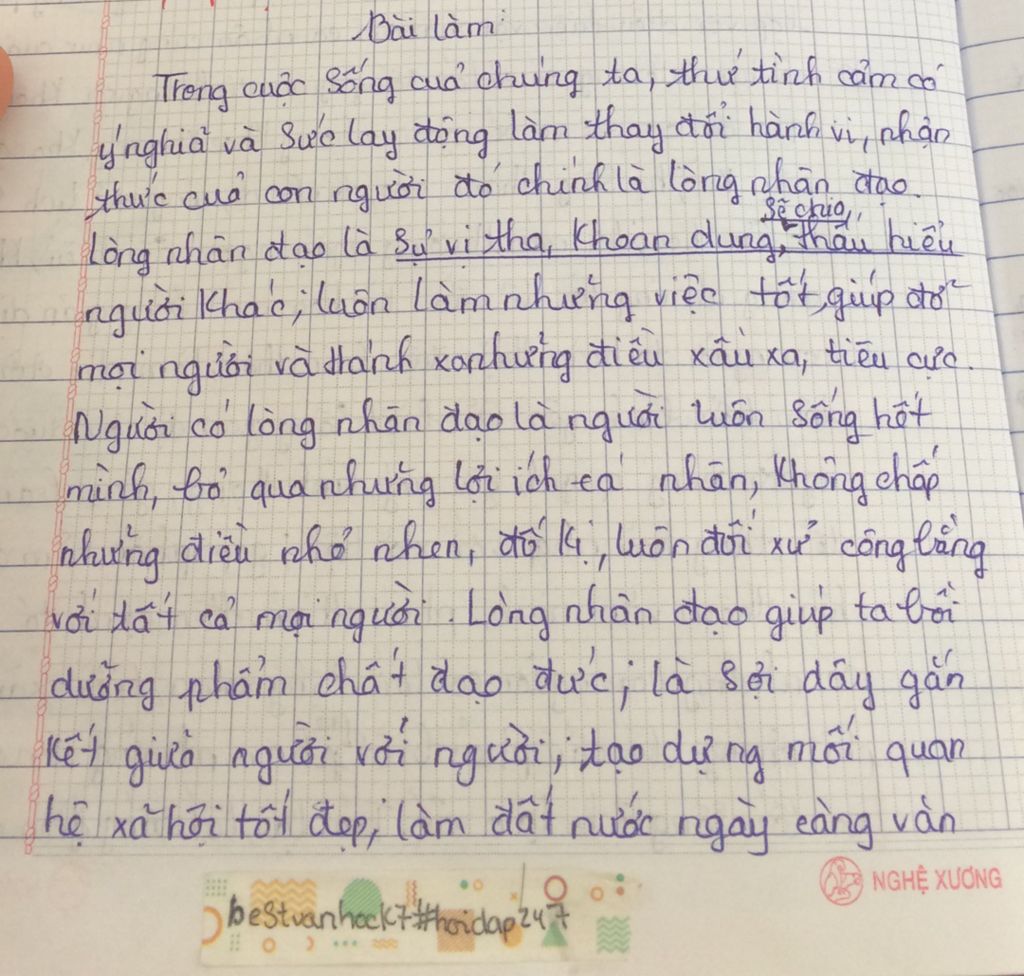 Bài làm:
Trong cuộc sống của chúng ta, thứ tình cảm có
ý nghĩa và sức lay động làm thay đổi hành vi, nhận
thức của con người đó chính là lòng nhân đạo.
sẽ chia,
Lòng nhân đạo là sự vị tha, khoan dung, thấu hiểu
người khác; luôn làm những việc tốt, giúp đỡ
mọi người và tránh xa những điều xấu xa, tiêu cực.
Người có lòng nhân đạo là người luôn sống hết
mình, bỏ qua những lợi ích cá nhân, không chấp
những điều nhỏ nhen, đố kị, luôn đối xử công bằng
với tất cả mọi người. Lòng nhân đạo giúp ta bồi
dưỡng phẩm chất đạo đức; là sợi dây gắn
kết giữa người với người; tạo dựng mối quan
hệ xã hội tốt đẹp; làm đất nước ngày càng văn
NGHỆ XƯƠNG
bestvanhock7#hoidap247